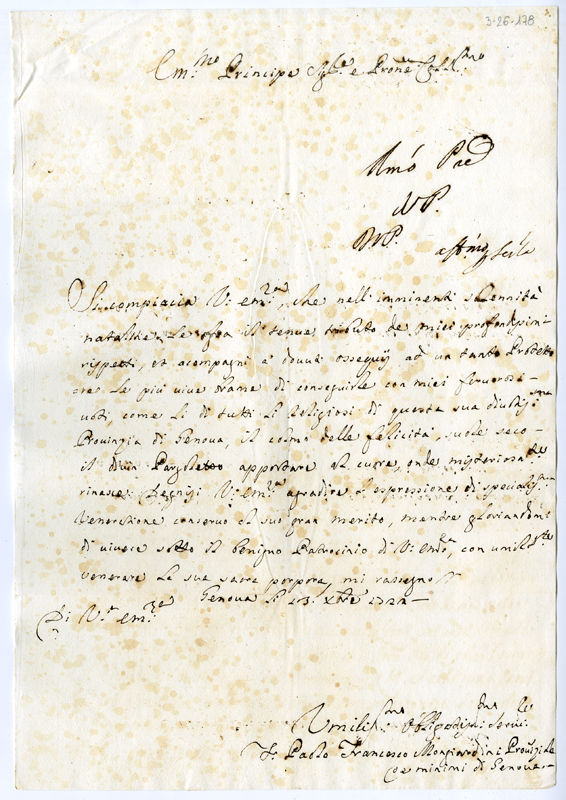 3-26-178
Em:mo Principe Sig:re e Prone Col:mo
Si compiacia V: em:za, che nell'imminenti solennità
natalitie Le offra il tenue tributo de miei profondissimi
rispetti, et acompagni i dovuti ossequij ad un tanto Protetto
=re Le più vive brame di conseguirle con miei fervorosi
voti, come Li di tutti Li Religiosi di questa sua
Provinzia di Genova, il colmo delle felicità, suole seco
il divin Pargoletto apportare al cuore, onde
rinasce: Degnisi V: em:za agradire l'espressione di
Veneratione conservo al suo gran merito, mentre gloriandomi
di vivere sotto il benigno Patrocinio di V: em:za, con
venerare La sua sacra porpora, mi rassegno
Genova Li 23. Xbre
Di V:a em:za
Umilis:mo Servi:
F: Paolo Francesco Provinziale
de minimi di Genova